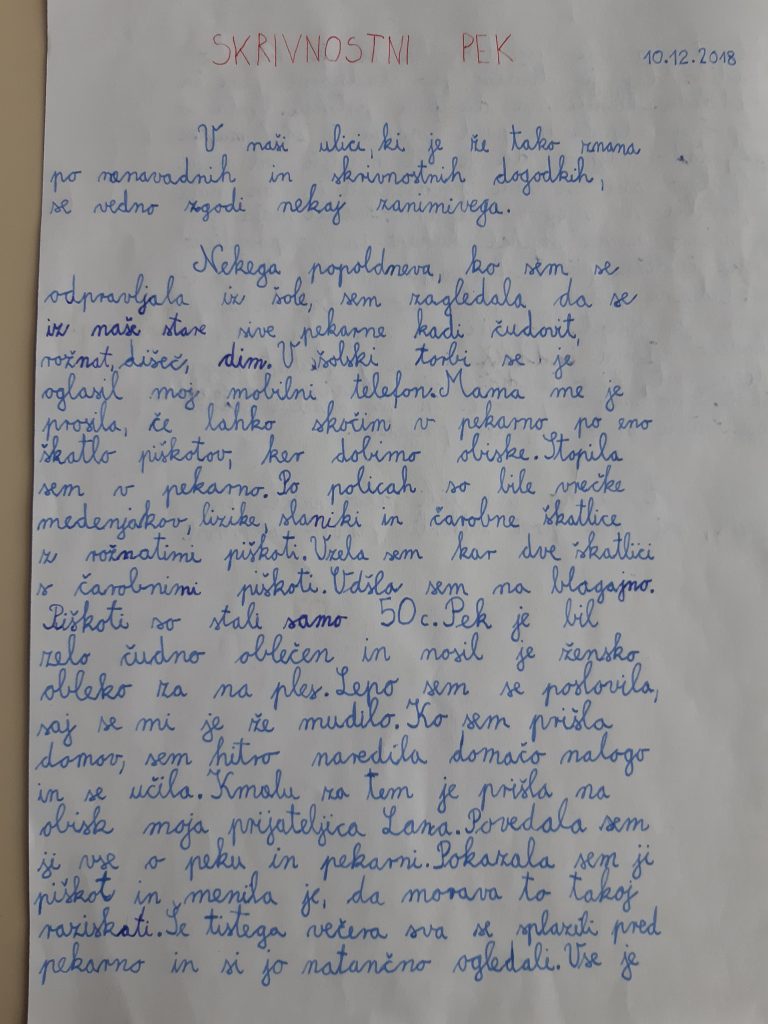 SKRIVNOSTNI PEK 10.12.2018
V naši ulici, ki je že tako znana
po nenavadnih in skrivnostnih dogodkih,
se vedno zgodi nekaj zanimivega.
Nekega popoldneva, ko sem se
odpravljala iz šole, sem zagledala da se
iz naše stare sive pekarne kadi čudovit,
rožnat, dišeč, dim. V šolski torbi se je
oglasil moj mobilni telefon. Mama me je
prosila, če lahko skočim v pekarno po eno
škatlo piškotov, ker dobimo obiske. Stopila
sem v pekarno. Po policah so bile vrečke
medenjakov, lizike, slaniki in čarobne škatlice
z rožnatimi piškoti. Vzela sem kar dve škatlici
s čarobnimi piškoti. Odšla sem na blagajno.
Piškoti so stali samo 50c. Pek je bil
zelo čudno oblečen in nosil je žensko
obleko za na ples. Lepo sem se poslovila,
saj se mi je že mudilo. Ko sem prišla
domov, sem hitro naredila domačo nalogo
in se učila. Kmalu za tem je prišla na
obisk moja prijateljica Lana. Povedala sem
ji vse o peku in pekarni. Pokazala sem ji
piškot in menila je, da morava to takoj
raziskati. Še tistega večera sva se splazili pred
pekarno in si jo natančno ogledali. Vse je